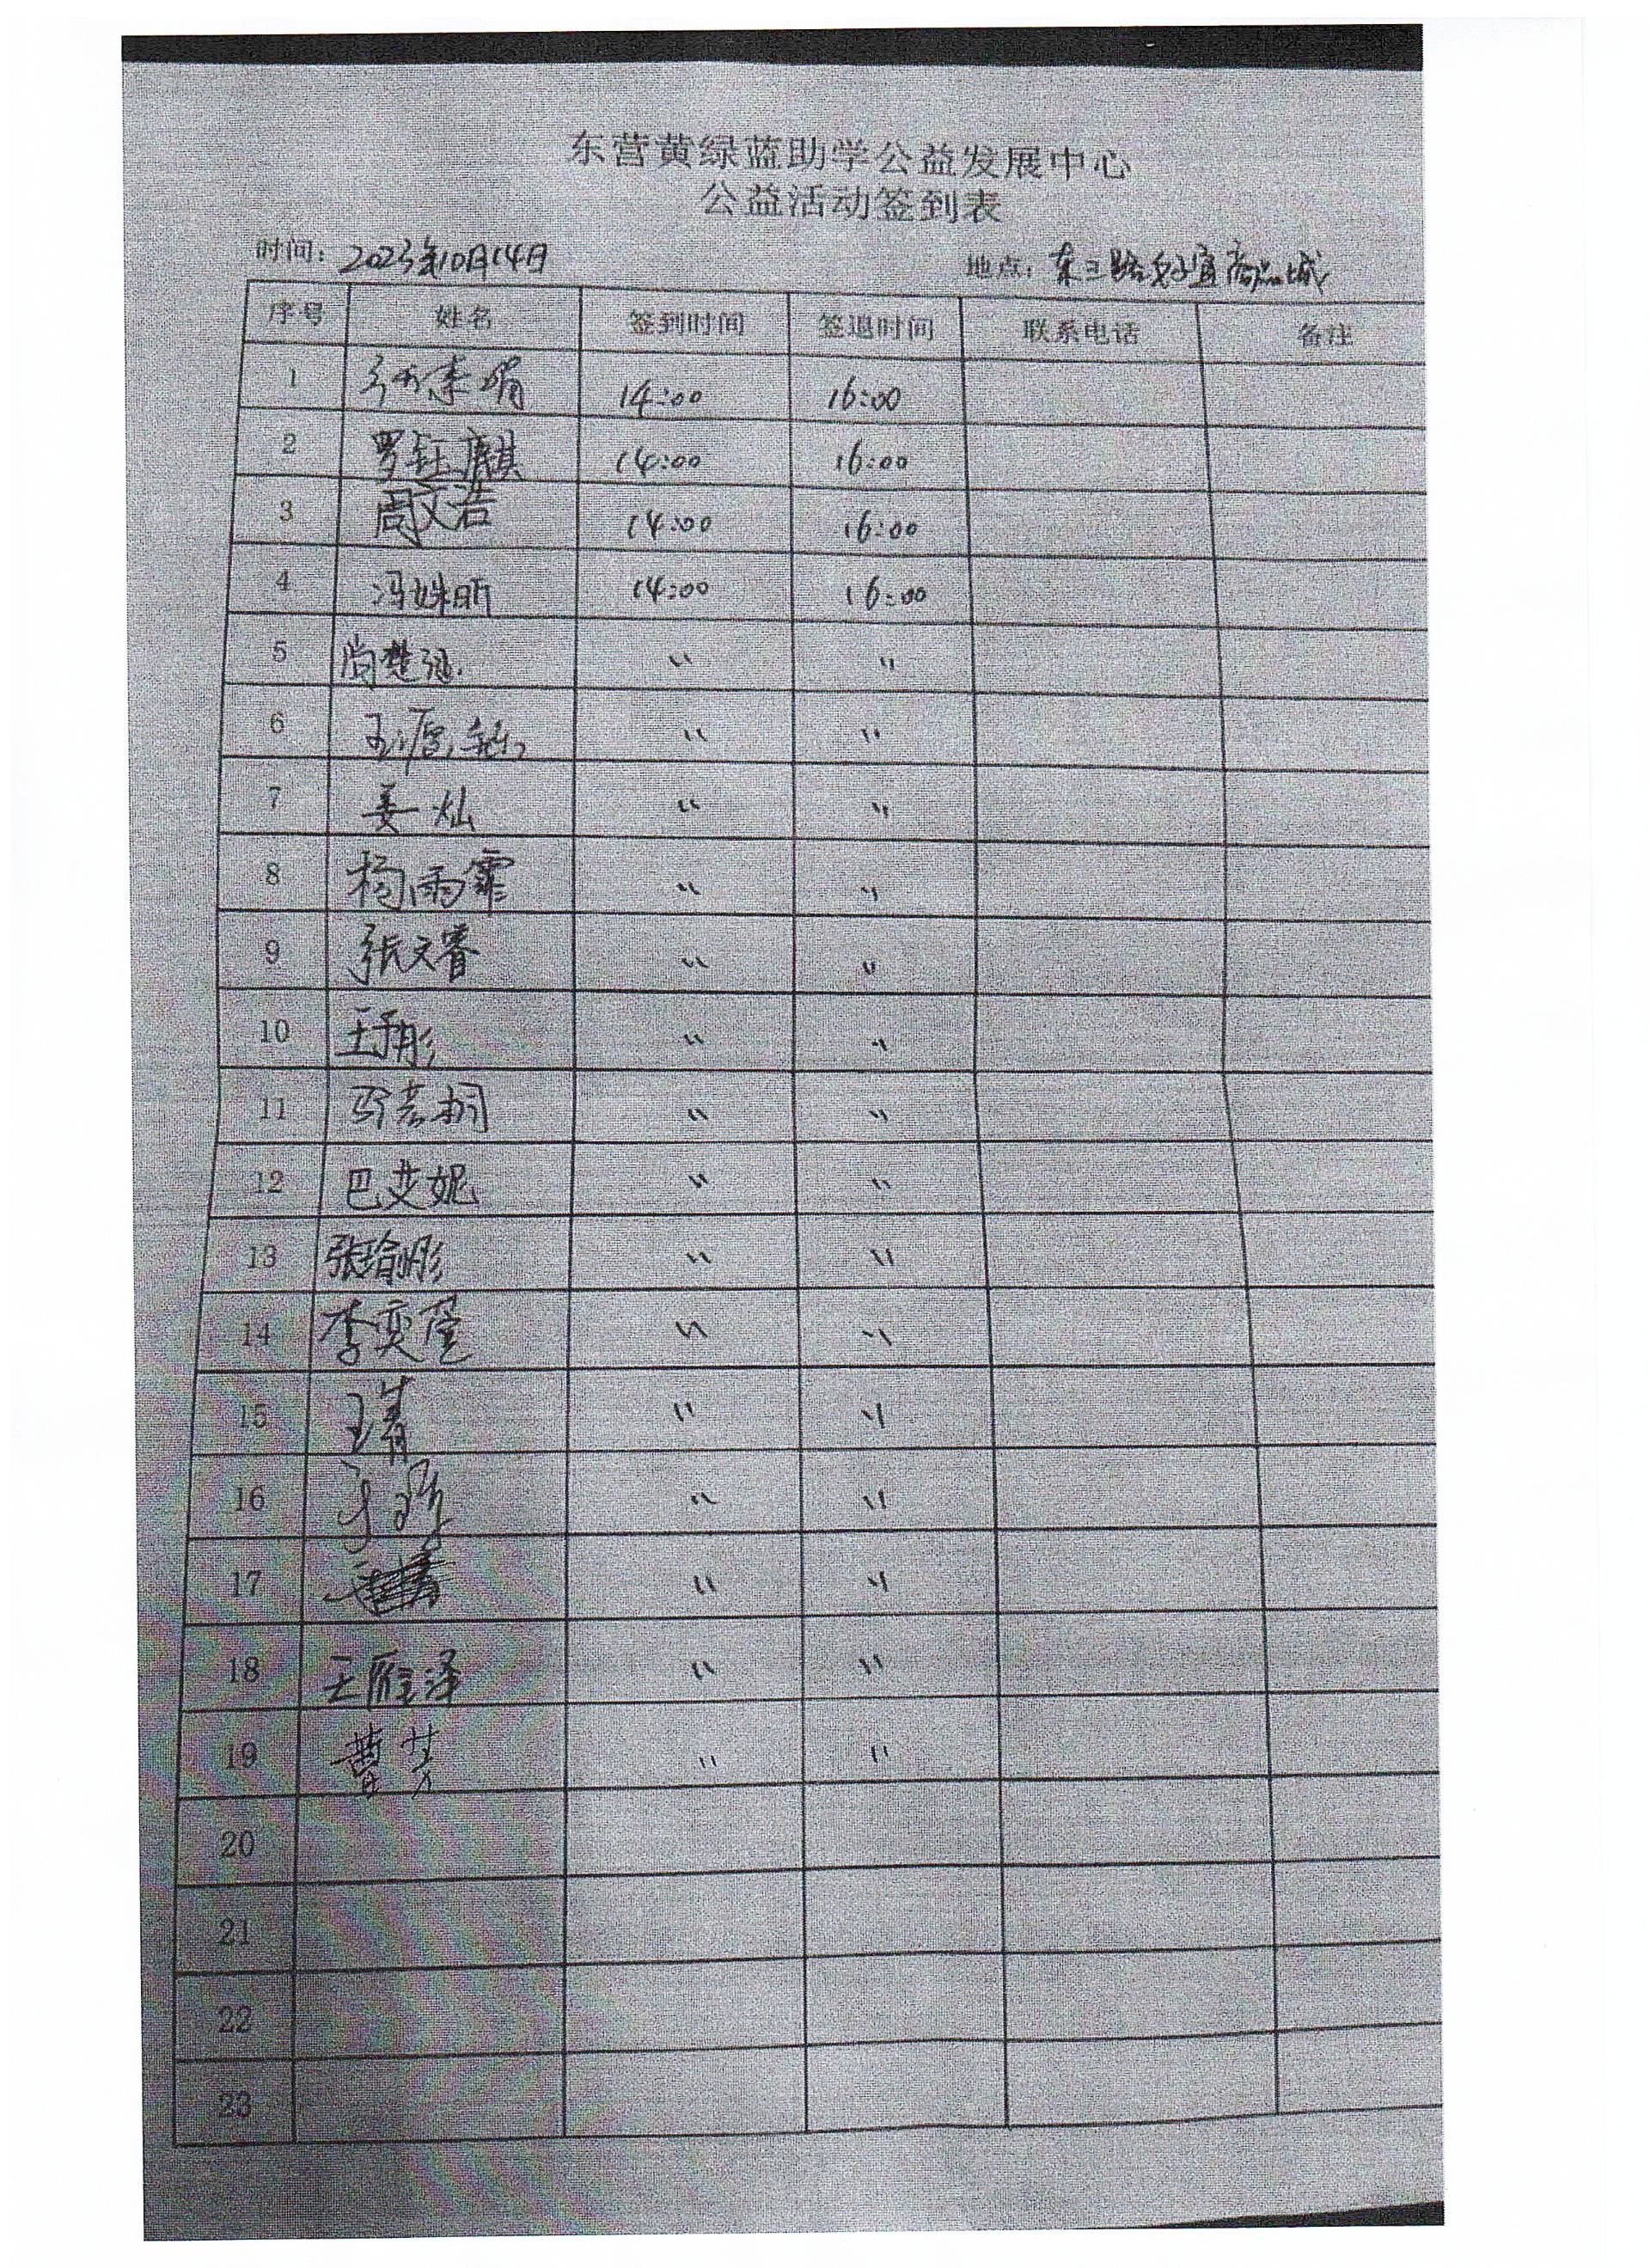 东营黄绿蓝助学公益发展中心
公益活动签到表
时间：2023年10月14日 地点：东三路 宜 商品城
序号 姓名 签到时间 签退时间 联系电话 备注
1 素娟 14:00 16:00
2 罗钰麒 14:00 16:00
3 周文浩 14:00 16:00
4 冯姝昕 14:00 16:00
5 尚楚 〃 〃
6 王 〃 〃
7 姜灿 〃 〃
8 杨雨霏 〃 〃
9 张文睿 〃 〃
10 王予彤 〃 〃
11 〃 〃
12 巴艾妮 〃 〃
13 张瑜彤 〃 〃
14 李奕萱 〃 〃
15 王青 〃 〃
16 〃 〃
17 〃 〃
18 王雁泽 〃 〃
19 曹芳 〃 〃
20
21
22
23